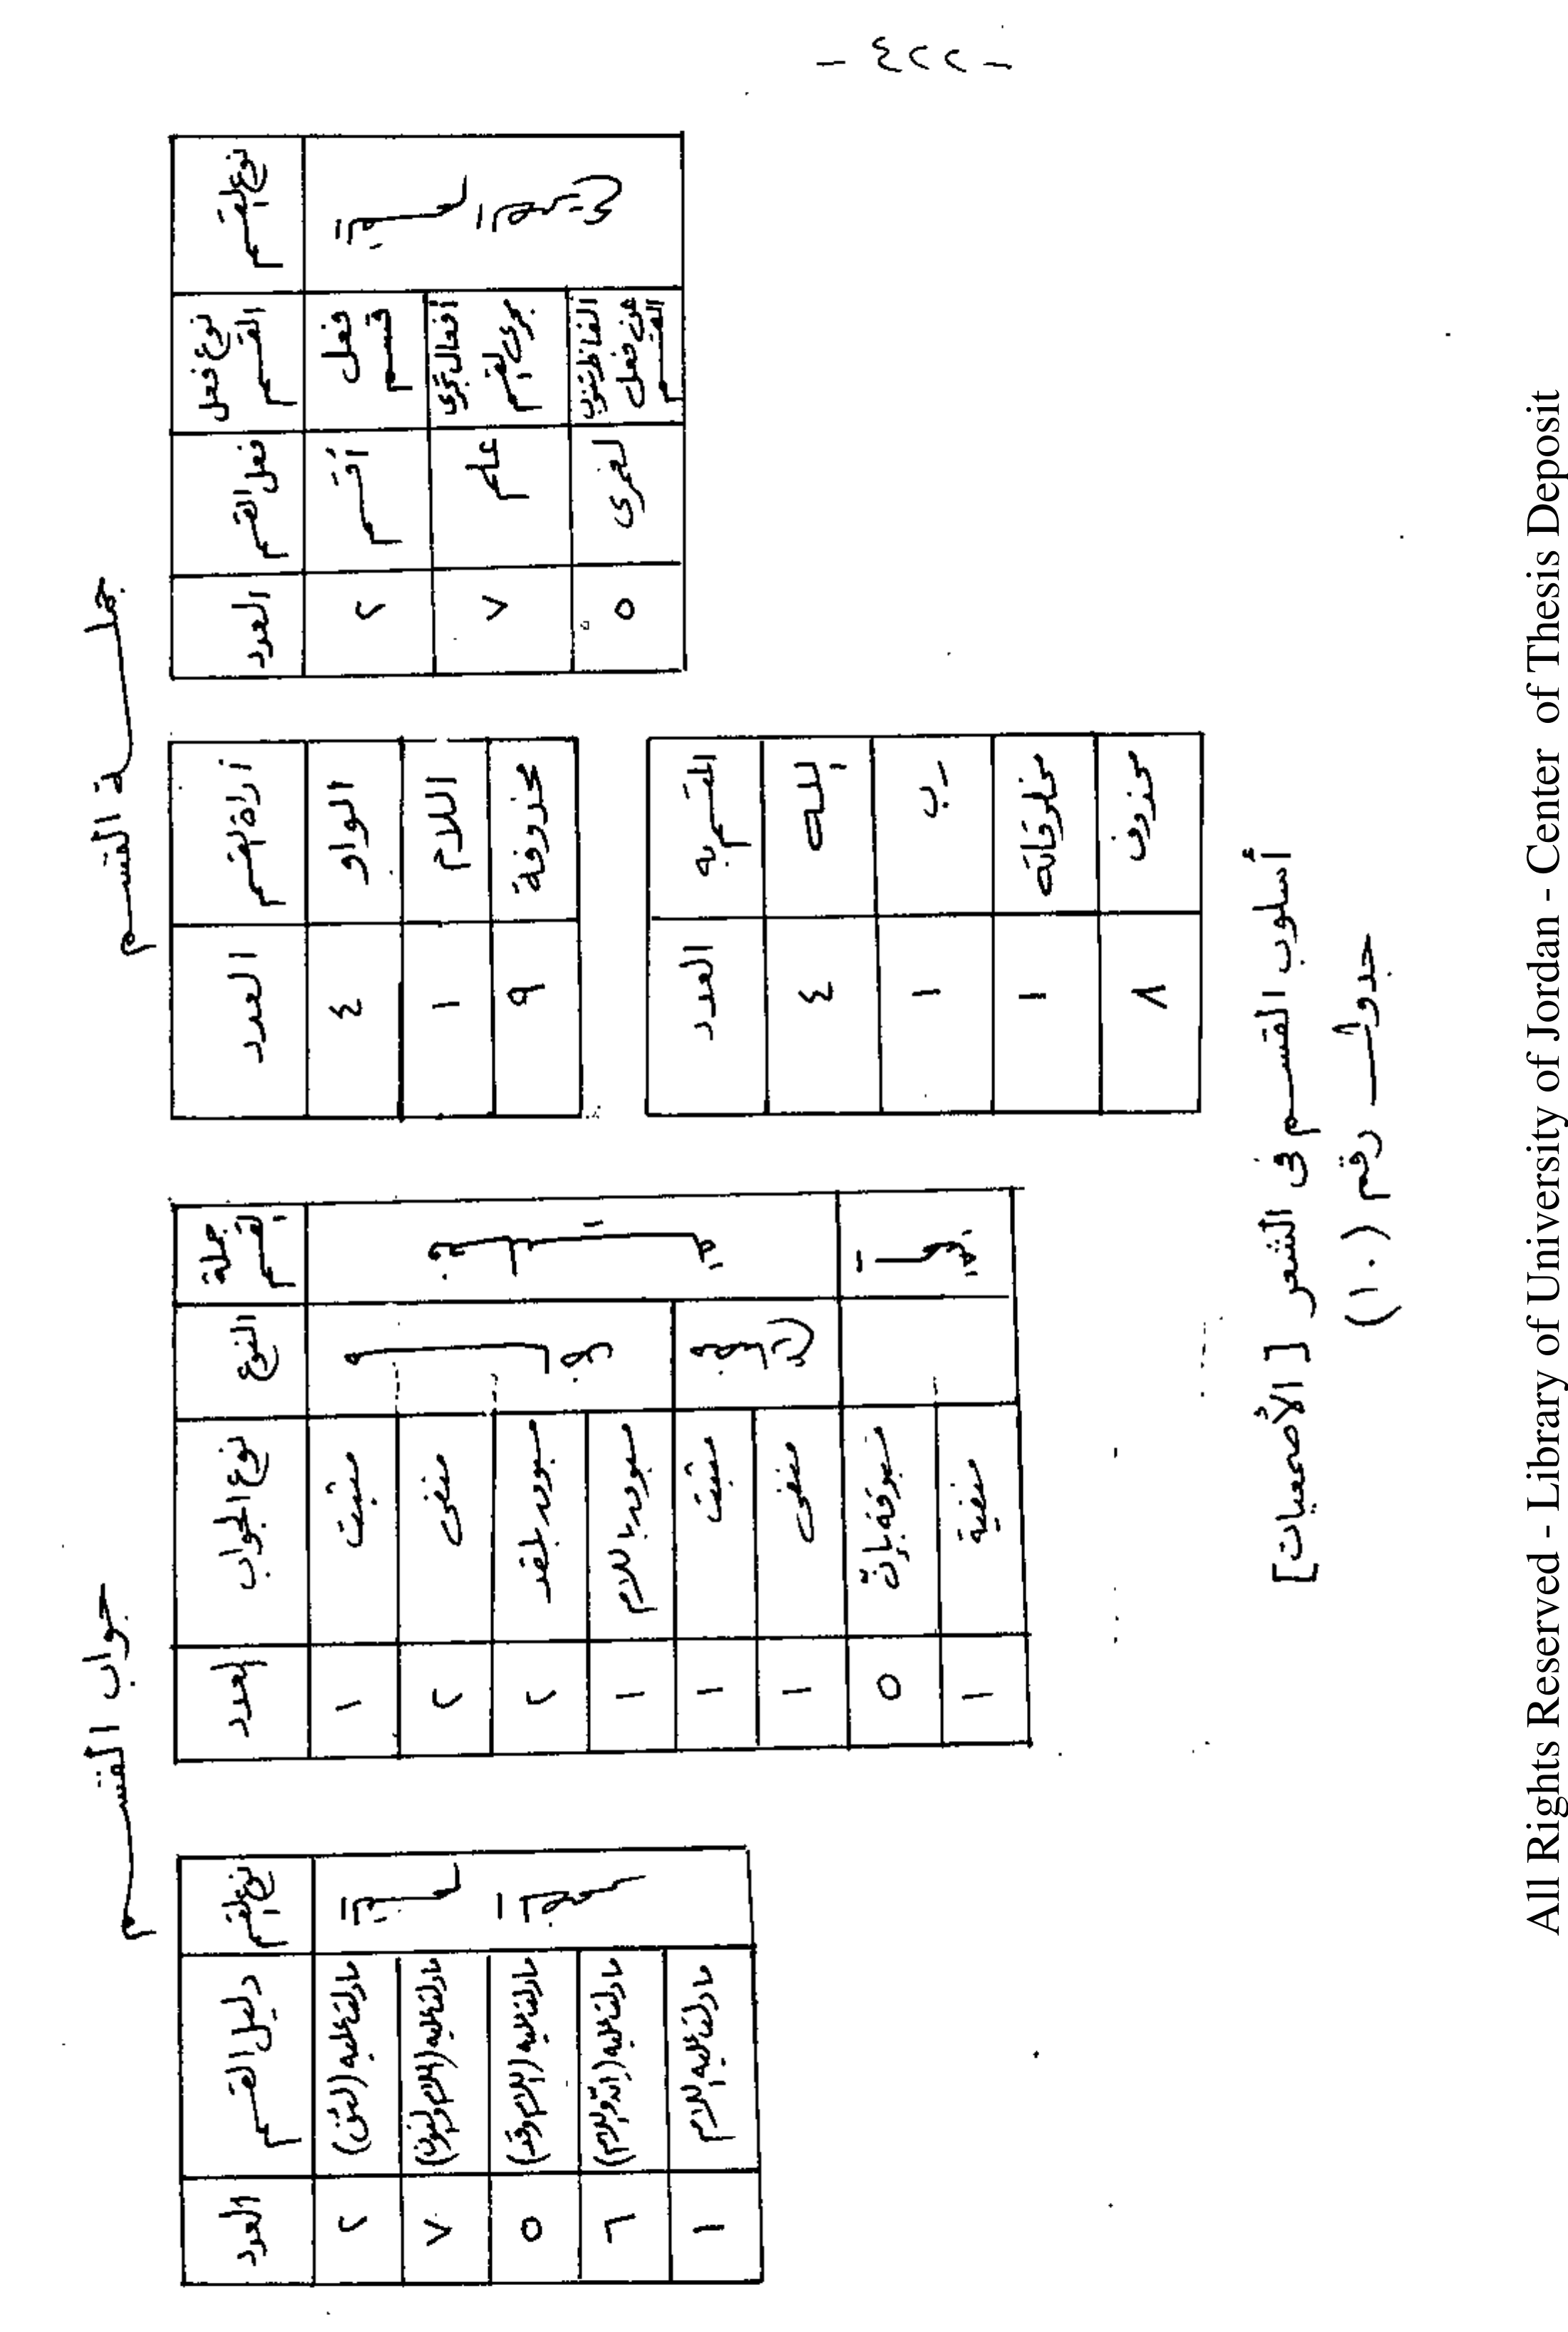 - ٤٢٢ -
جملة القسم
نوع القسم
نوع فعل القسم
فعل القسم
العدد
فعل قسم
أقسم
٢
أفعال تجري مجرى القسم
علم
٧
ألفاظ تنوب عن فعل القسم
لعمرى
٥
أداة القسم
العدد
الواو
٤
اللام
١
محذوفة
٩
المقسم به
العدد
الله
٤
رب
١
مخلوقاته
١
محذوف
٨
جواب القسم
جملة القسم
النوع
نوع الجواب
العدد
مثبت
١
منفى
٢
مسبوق بلقد
٢
مسبوق باللام
١
مثبت
١
منفى
١
مسبوقة بإنّ
٥
منفية
١
نوع القسم
دليل القسم
العدد
ما دلت عليه (لئن)
٢
ما دلت عليه (اللام والنون)
٧
ما دلت عليه (اللام وقد)
٥
ما دلت عليه (إنّ واللام)
٦
ما دلت عليه اللام
١
أسلوب القسم فى الشعر [الأصمعيات]
جدول رقم (١٠)
All Rights Reserved - Library of University of Jordan - Center of Thesis Deposit